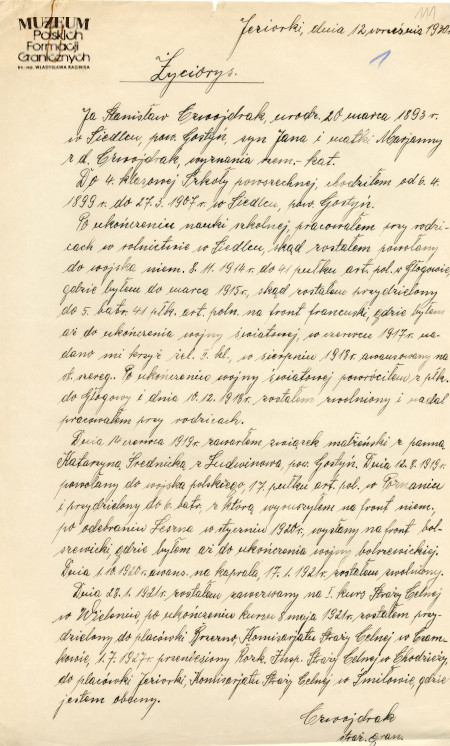 MUZEUM
Polskich
Formacji
Granicznych
im. mjr. WŁADYSŁAWA RAGINISA
Jeziorki, dnia 12 września 1930r.
1
Życiorys.
Ja Stanisław Czwojdrak, urodz. 20 marca 1893 r.
w Siedlcu, pow. Gostyń, syn Jana i matki Marjanny
z d. Czwojdrak, wyznania rzym.- kat.
Do 4. klasowej Szkoły powszechnej, chodziłem od 6.4.
1899 r. do 27.3.1907 r. w Siedlcu, pow. Gostyń.
Po ukończeniu nauki szkolnej, pracowałem przy rodzi-
cach w rolnictwie w Siedlcu, skąd zostałem powołany
do wojska niem. 8.11.1914 r. do 41 pułku art. pol. w Głogowie,
gdzie byłem do marca 1915 r., skąd zostałem przydzielony
do 5. batr. 41 płk. art. poln. na front francuski, gdzie byłem
aż do ukończenia wojny światowej, w czerwcu 1917 r. na-
dano mi krzyż żel. II. kl., w sierpniu 1918 r. awansowany na
st. szereg. Po ukończeniu wojny światowej powróciłem z płk.
do Głogowy i dnia 10.12.1918 r. zostałem zwolniony i nadal
pracowałem przy rodzicach.
Dnia 14 czerwca 1919 r. zawarłem związek małżeński z panną
Katarzyną Srednicką z Ludwinowa, pow. Gostyń. Dnia 12.8.1919 r.
powołany do wojska polskiego, 17. pułku art. pol. w Poznaniu
i przydzielony do 6. batr. z którą wyruszyłem na front niem.,
po odebraniu Leszna w styczniu 1920 r., wysłany na front bol-
szewicki, gdzie byłem aż do ukończenia wojny bolszewickiej.
Dnia 1.10.1920 r. awans. na kaprala, 17.1.1921 r. zostałem zwolniony.
Dnia 28.1.1921 r. zostałem zawezwany na I. kurs Straży Celnej
w Wieleniu, po ukończeniu kursu 8 maja 1921 r. zostałem przy-
dzielony do placówki Brzezno, Komisarjatu Straży Celnej w Czarn-
kowie, 1.7.1927 r. przeniesiony Rozk. Insp. Straży Celnej w Chodzieży
do placówki Jeziorki, Komisarjatu Straży Celnej w Śmiłowie, gdzie
jestem obecny.
Czwojdrak
straż. gran.